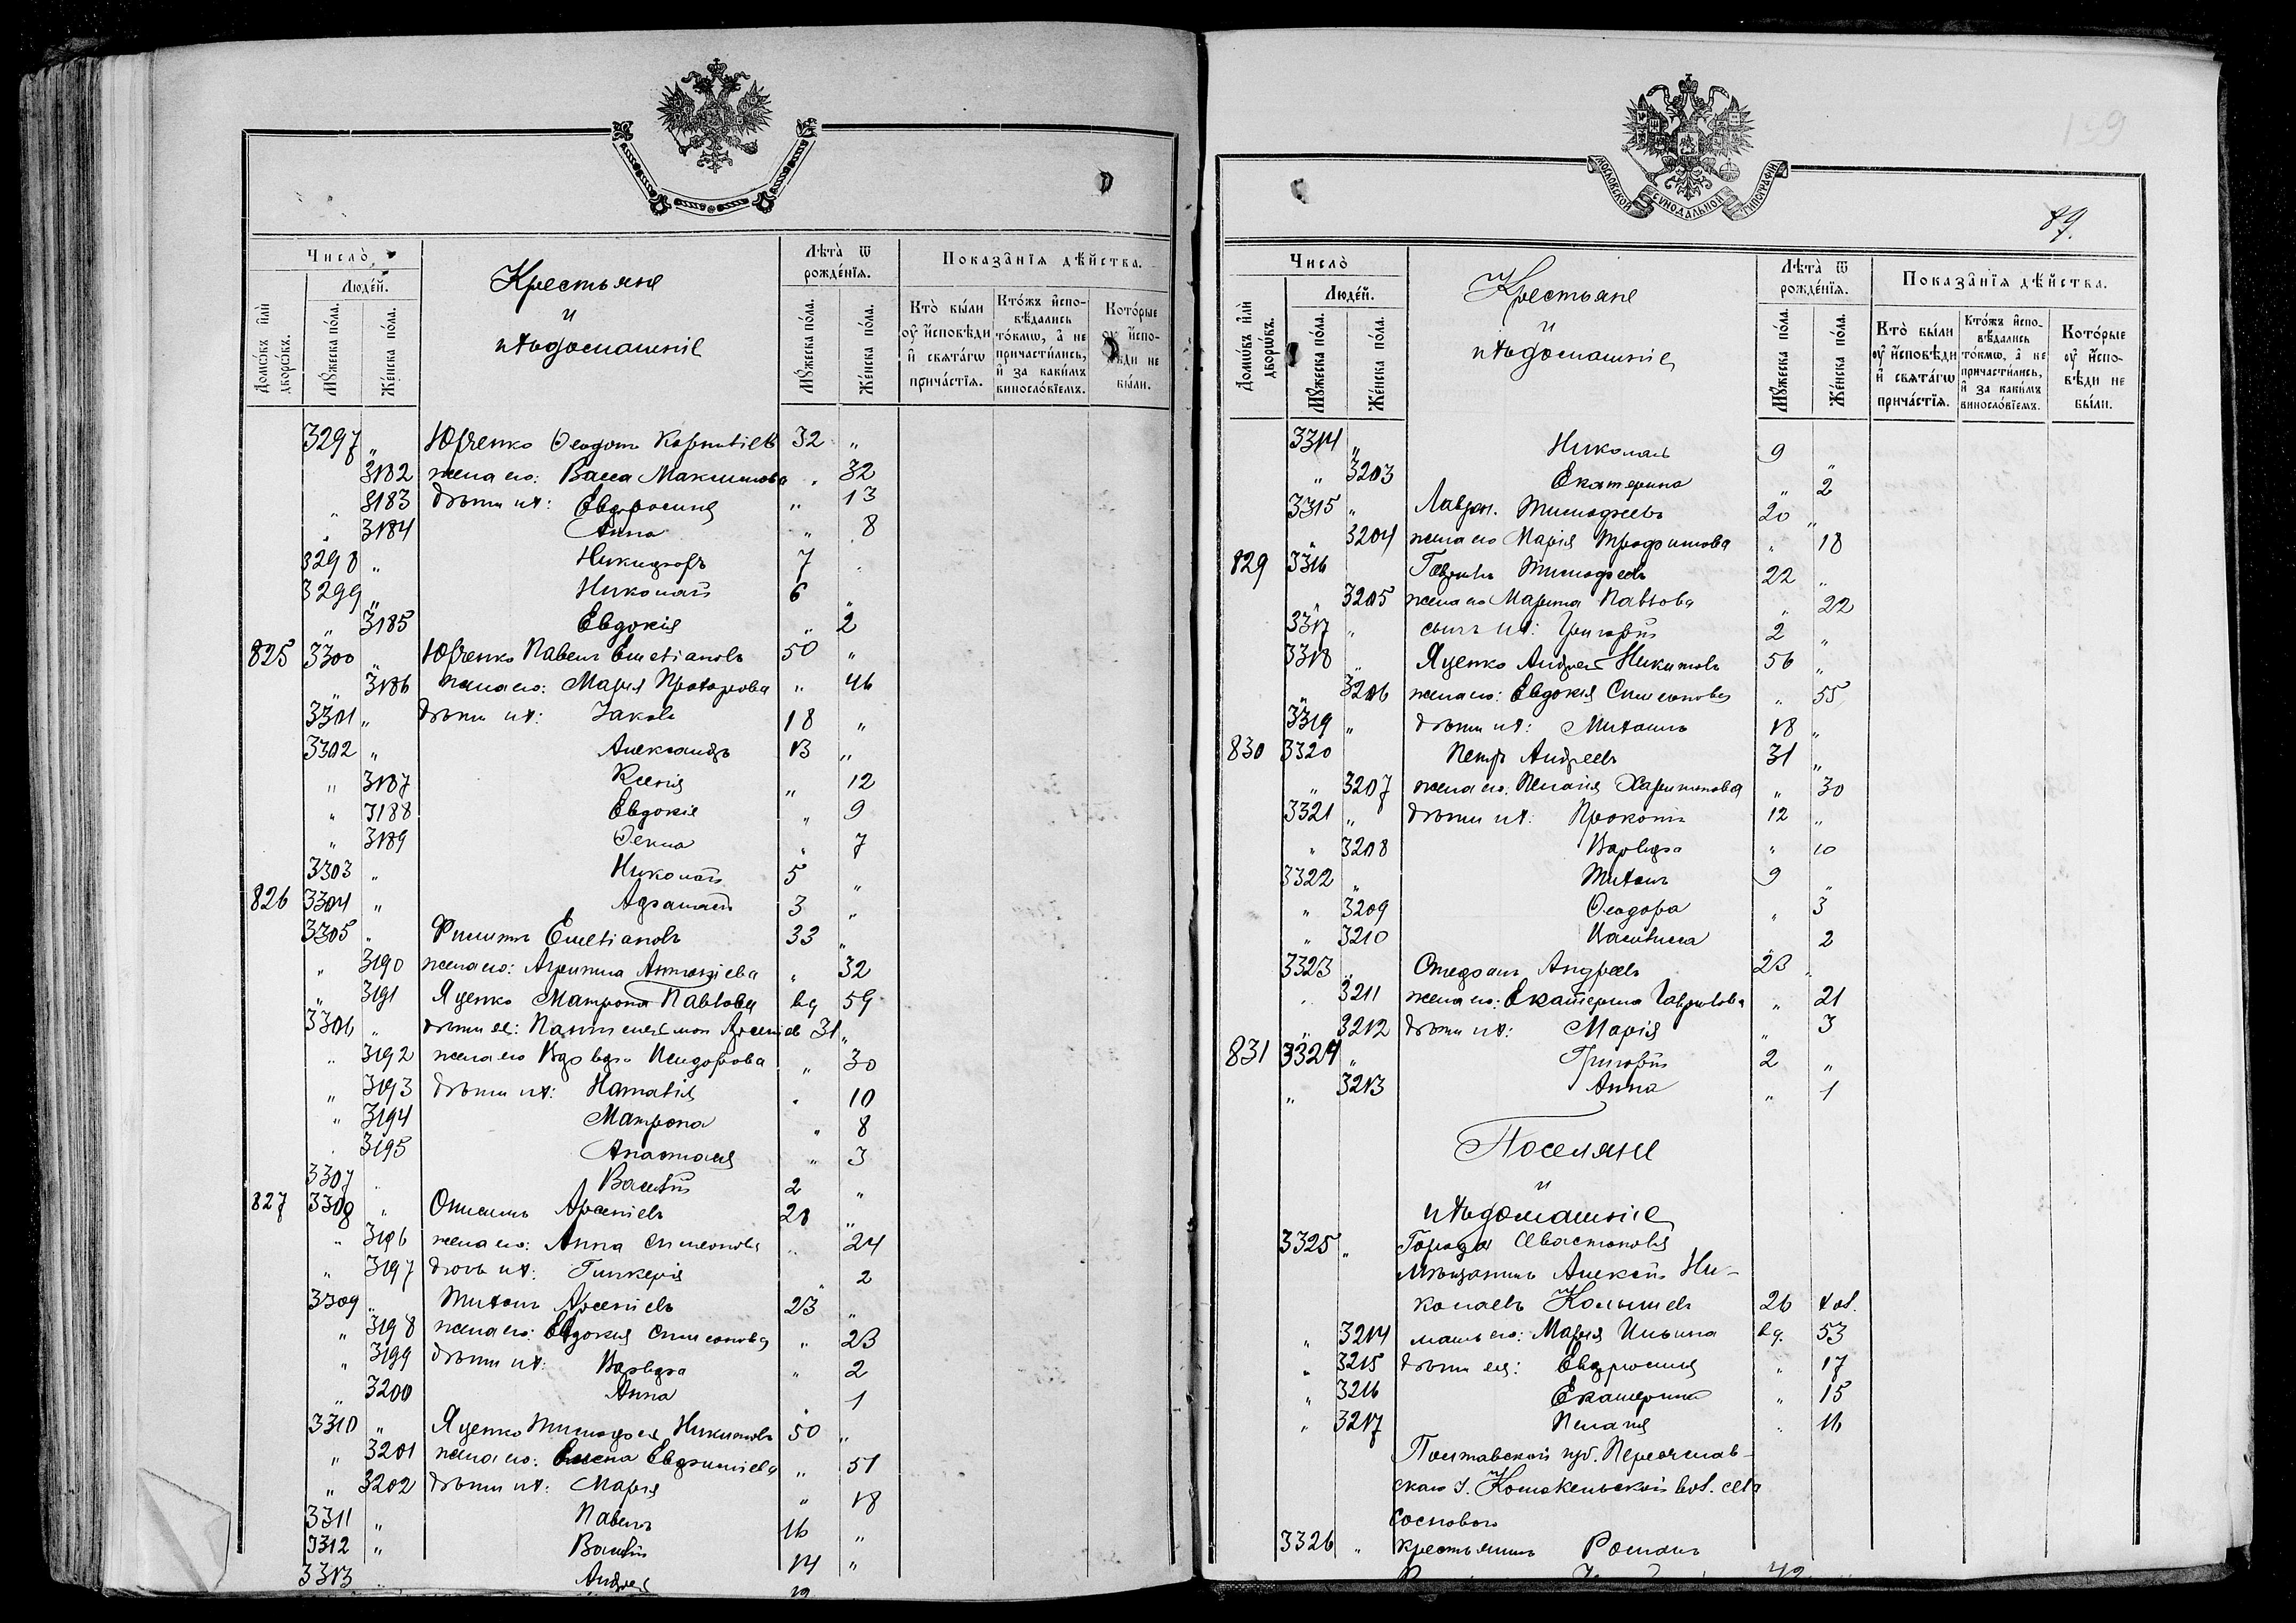 Число̀
Людѐй.
Домѡ́въ и҆лѝ дворѡ́въ.
Мꙋ́жеска по́ла.
Же́нска по́ла.
Крестьяне
и
ихъ домашніе
Лѣ́та ѿ рожде́нїѧ.
Мꙋ́жеска по́ла.
Же́нска по́ла.
Показа̑нїѧ дѣ́йства.
Кто̀ бы́ли ᲂу҆ и҆сповѣ́ди и҆ свѧта́гѡ прича́стїѧ.
Кто́жъ и҆сповѣ́дались то́кмѡ, а҆ не причасти́лись, и҆ за каки́мъ винослóвїемъ.
Кото́рые ᲂу҆ и҆сповѣ́ди не бы́ли.
3297 " Юрченко Ѳеодотъ Корниліевъ 32 "
3182 жена его: Васса Максимова " 32
" 3183 дѣти ихъ: Евфросинія " 13
" 3184 Анна " 8
3298 " Никифоръ 7
3299 " Николай 6 "
" 3185 Евдокія " 2
825 3300 " Юрченко Павелъ Емеліановъ 50 "
" 3186 жена его: Марія Прохорова " 46
3301 " дѣти ихъ: Іаковъ 18 "
3302 " Александръ 13 "
" 3187 Ксенія " 12
" 3188 Евдокія " 9
" 3189 Ѳекла " 7
3303 " Николай 5 "
826 3304 " 3 "
3305 " Филиппъ Емеліановъ 33 "
" 3190 жена его: Агрипина " 32
" 3191 Яценко Матрона Павлова вд 59
3306 " дѣти ея: Пантелеимон Арсеніев 31 "
" 3192 жена его Исидорова " 30
" 3193 дѣти ихъ: Наталія " 10
" 3194 Матрона " 8
3195 Анастасія " 3
3307 " Василій 2 "
827 3308 " Онисимъ Арсеніевъ 28 "
" 3196 жена его: Анна Симеонова " 24
" 3197 дочь ихъ: Гликерія " 2
3309 " Тихонъ Арсеніевъ 23 "
" 3198 жена его: Евдокия Симеонова " 23
" 3199 дѣти ихъ: Варвара " 2
" 3200 Анна " 1
3310 " Яценко Тимофей Никитовъ 50 "
" 3201 жена его: Елена " 51
" 3202 дѣти ихъ: Марія " 18
3311 " Павелъ 16 "
3312 " Василій 14 "
3313 Андрей
МОСКОВСКОЙ СѴНОДАЛЬНОЙ ТИПОГРАФІИ
139
89.
Число̀
Людѐй.
Домѡ́въ и҆лѝ дворѡ́въ.
Мꙋ́жеска по́ла.
Же́нска по́ла.
Крестьяне
и
ихъ домашніе
Лѣ́та ѿ рожде́нїѧ.
Мꙋ́жеска по́ла.
Же́нска по́ла.
Показа̑нїѧ дѣ́йства.
Кто̀ бы́ли ᲂу҆ и҆сповѣ́ди и҆ свѧта́гѡ прича́стїѧ.
Кто́жъ и҆сповѣ́дались то́кмѡ, а҆ не причасти́лись, и҆ за каки́мъ винослóвїемъ.
Кото́рые ᲂу҆ и҆сповѣ́ди не бы́ли.
3314 " Николай 9 "
" 3203 Екатерина " 2
3315 " Лаврен. Тимофеевъ 20 "
" 3204 жена его Марія Трофимова " 18
829 3316 Гавріилъ Тимофеевъ 22 "
" 3205 жена его Марѳа Павлова " 22
3317 " сынъ ихъ: Григорій 2 "
3318 " Яценко Андрей Никитовъ 56 "
" 3206 жена его: Евдокія Симеонова " 55
3319 " дѣти ихъ: Михаилъ 18 "
830 3320 Петръ Андреевъ 31 "
" 3207 жена его: Пелагія Харитонова " 30
3321 " дѣти ихъ: Прокопій 12 "
" 3208 Варвара " 10
3322 " Тихонъ 9 "
" 3209 Ѳеодора " 3
" 3210 " 2
3323 " Стефанъ Андреевъ 23 "
3211 жена его: Екатерина Гаврилова " 21
" 3212 дѣти ихъ: Марія " 3
831 3324 " Григорій 2 "
" 3213 Анна " 1
Поселяне
и
ихъ домашніе
3325 " Города Севастополя
мѣщанинъ Алексѣй Ни-
колаевъ 26 хол.
" 3214 мать его: Марія Ильина вд. 53
" 3215 дѣти ея: Евфросинія " 17
" 3216 Екатерина " 15
" 3217 Пелагія " 16
Полтавской губ. Переяслав-
скаго у. вол. села
Сосноваго
3326 " крестьянинъ Романъ
42